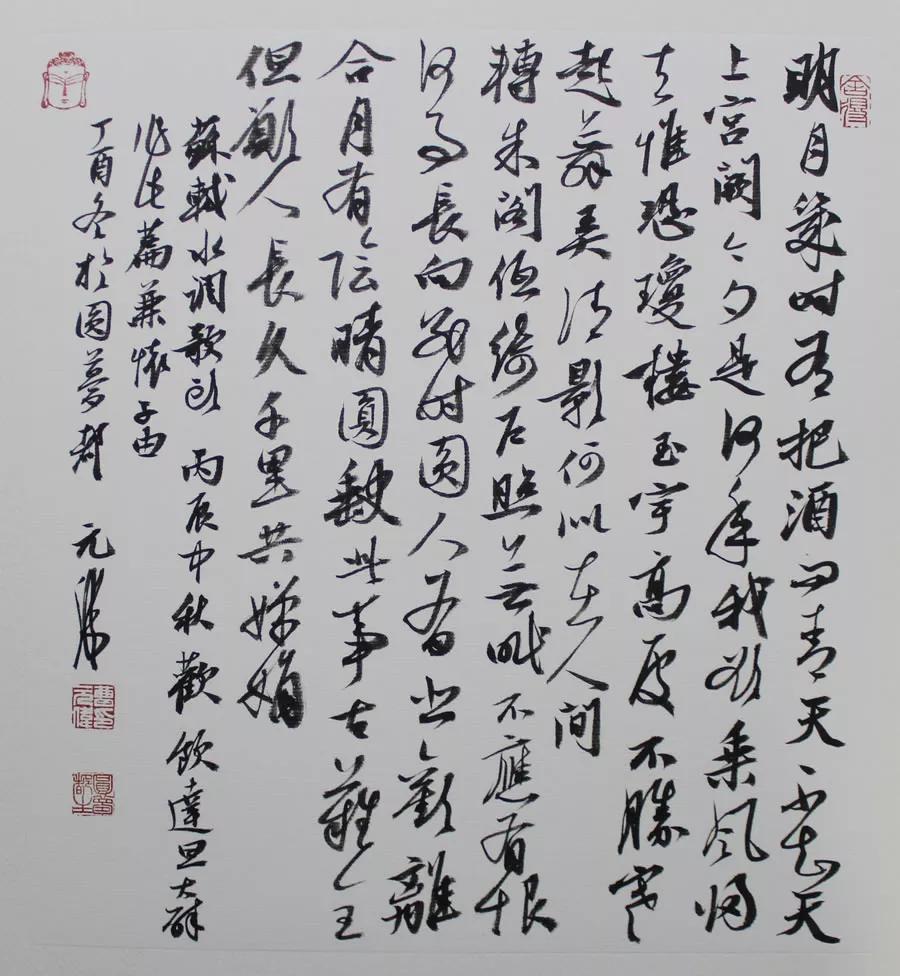 明月幾时有把酒问青天不知天
上宫阙今夕是何年我欲乘风归
去惟恐瓊樓玉宇高處不勝寒
起舞弄清影何似在人間
轉朱阁低绮户照無眠不應有恨
何事長向別时圓人有悲歡離
合月有陰晴圓缺此事古難全
但願人長久千里共嬋娟
蘇軾水調歌头 丙辰中秋歡飲達旦大醉
作此篇兼懷子由
丁酉冬於圆夢 元
舍得